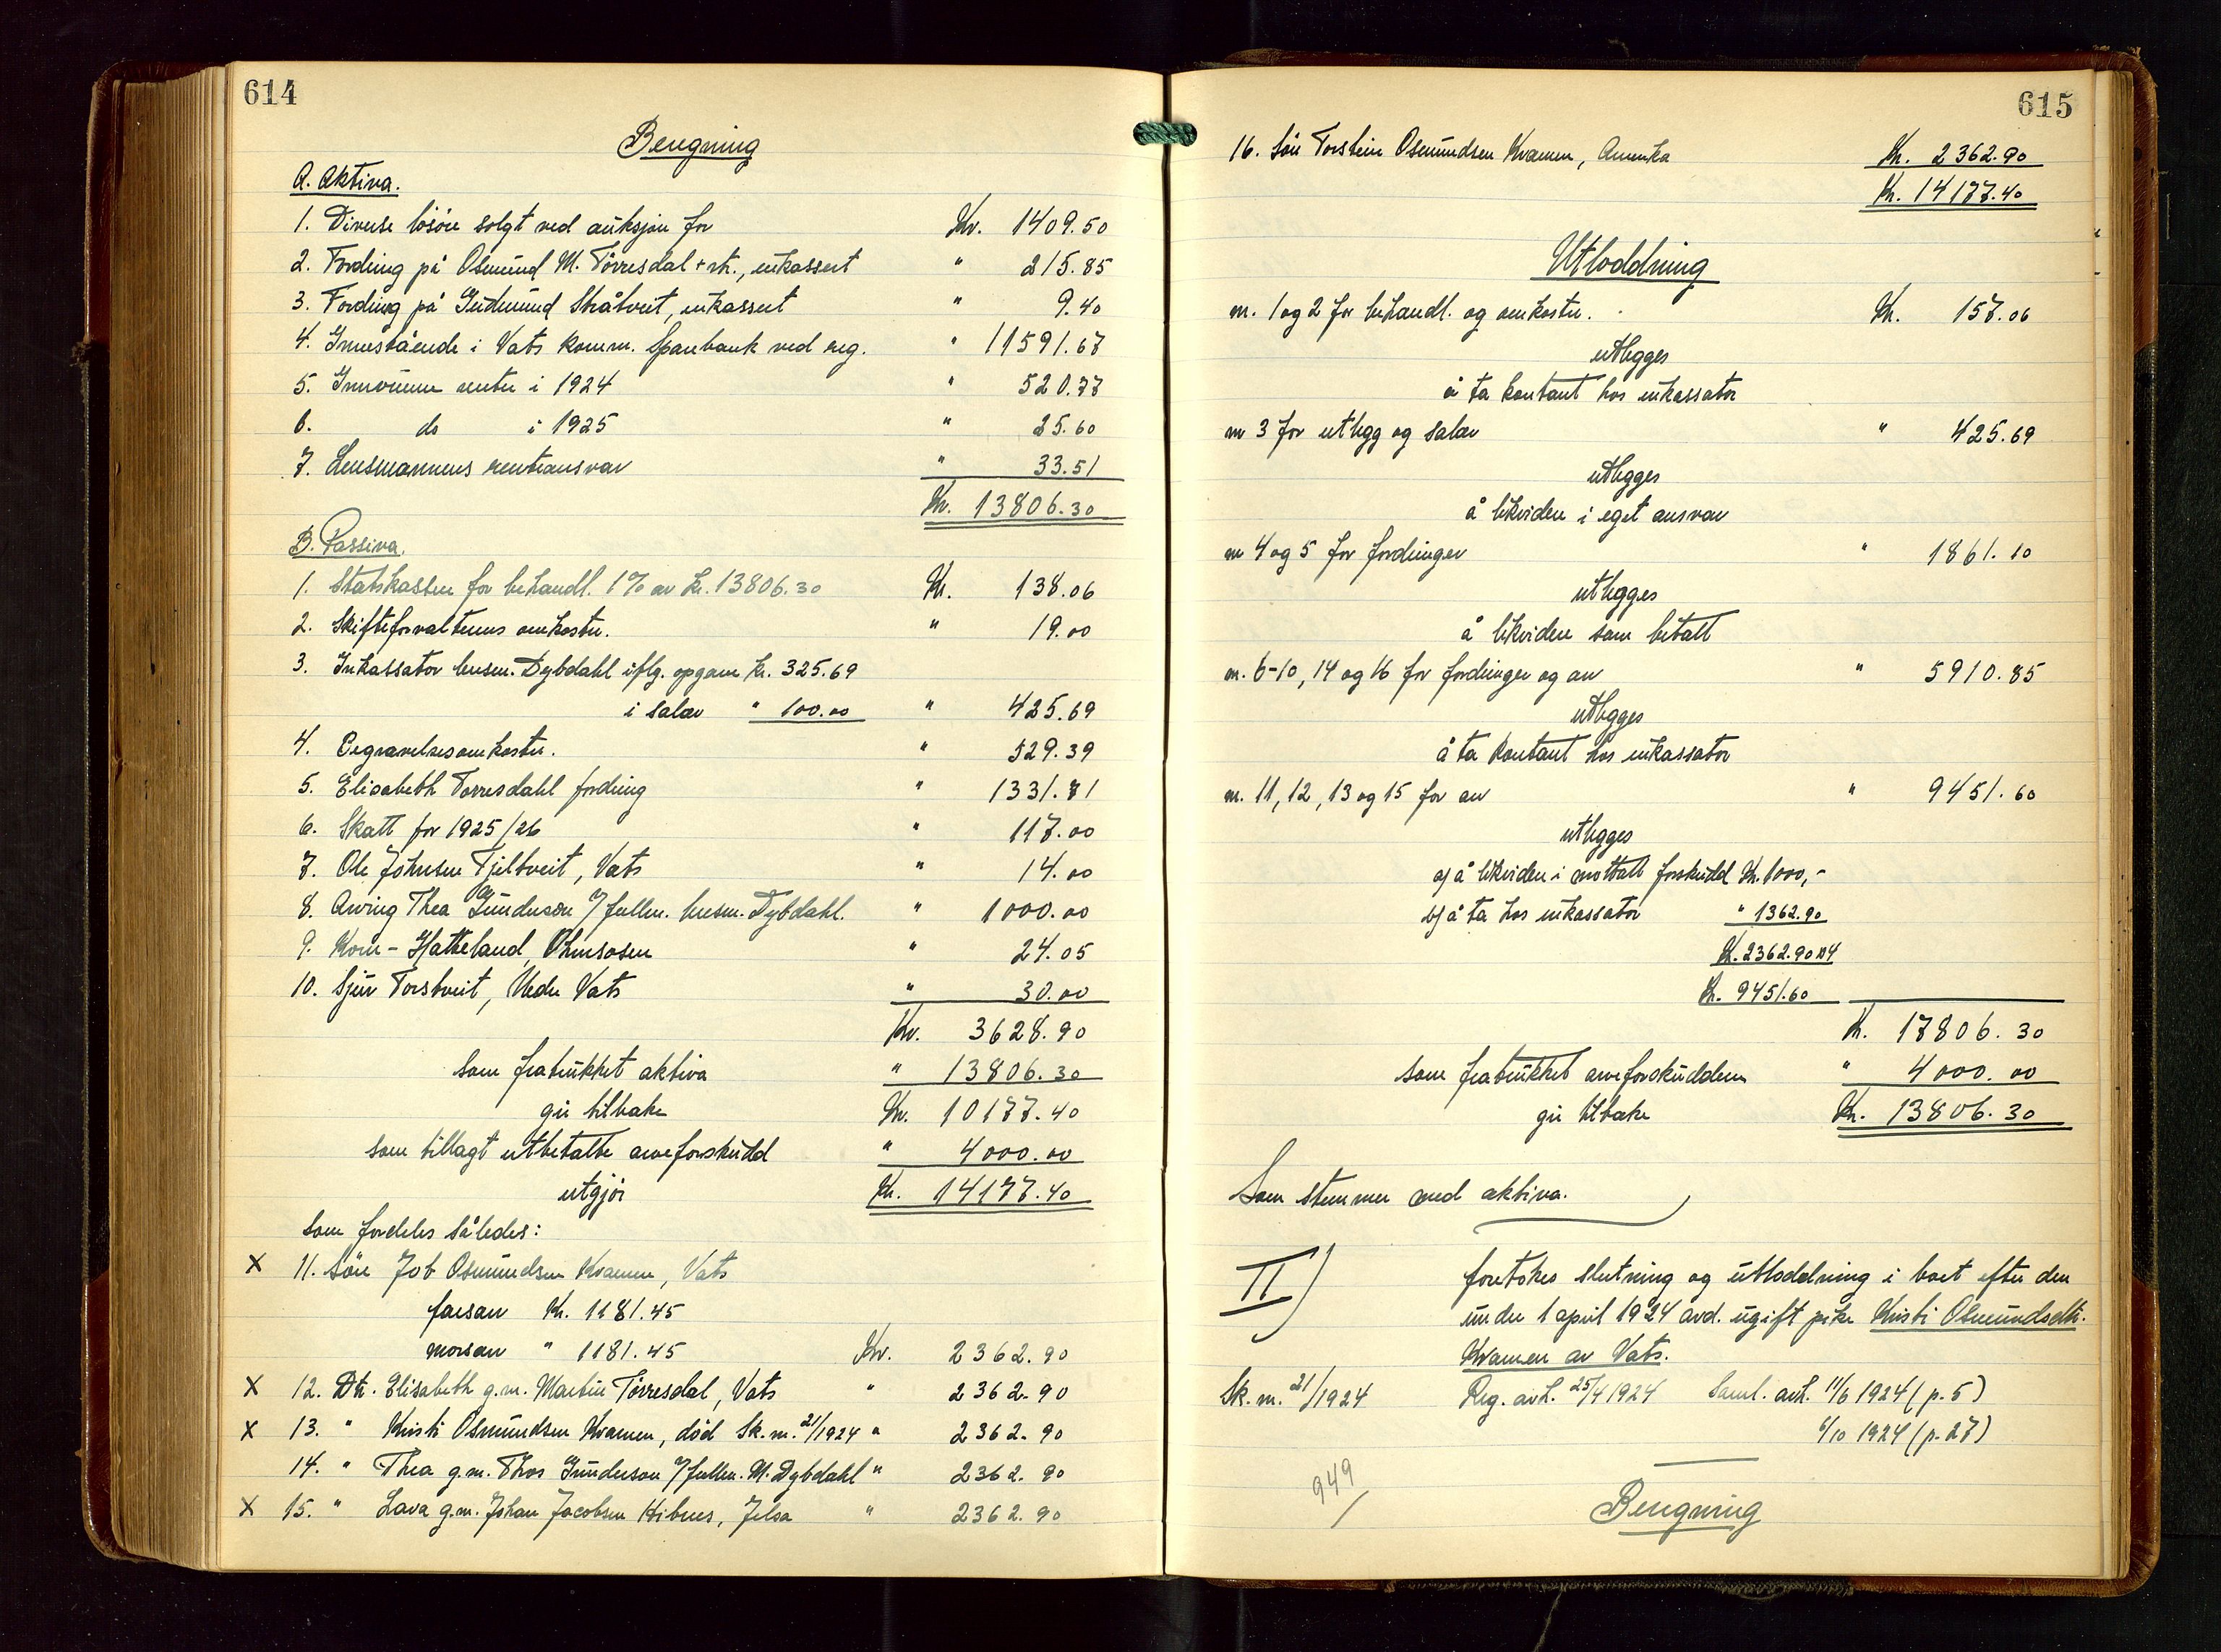 614
Beregning
A. Aktiva.
1. Diverse lösöre solgt ved auksjon for Kr. 1409.50
2. Fordring på Osmund M. Törresdal + rtr., inkassert " 215.85
3. Fordring på Gudmund Skåtveit, inkassert " 9.40
4. Innestående i Vats komm. Sparebank ved reg. " 11591.67
5. Innvunne renter i 1924 " 520.77
6. do i 1925 " 25.60
7. Lensmannens renteansvar " 33.51
Kr. 13806.30
B. Passiva.
1. Statskassen for behandl. 1% av kr. 13806.30 Kr. 138.06
2. Skifteforvalterens omkostn. " 19.00
3. Inkassator lensm. Dybdahl iflg. opgave kr. 325.69
i salær " 100.00 " 425.69
4. Begravelsesomkostn. " 529.39
5. Elisabeth Torresdahl fordring " 1331.71
6. Skatt for 1925/26 " 117.00
7. Ole Johnsen Fjeltveit, Vats " 14.00
8. Arving Thea Gunderson v/ fullm. lensm. Dybdahl. " 1000.00
9. Korn- Hatteland, Ølensosen " 24.05
10. Sjur Torstveit, Nedre Vats " 30.00
Kr. 3628.90
som fratrukket aktiva " 13806.30
gir tilbake Kr. 10177.40
som tillagt utbetalte arveforskudd " 4000.00
utgjör Kr. 14177.40
som fordeles således:
X 11. Sön Job Osmundsen Kvamen, Vats
farsarv Kr. 1181.45
morsarv " 1181.45 Kr. 2362.90
X 12. Dtr. Elisabeth g.m. Martin Törresdal, Vats " 2362.90
X 13. " Kristi Osmundsen Kvamen, död Sk.nr. 21/1924 " 2362.90
14. " Thea g.m. Thos Gunderson v/ fullm. M. Dybdahl " 2362.90
X 15. " Lava g.m. Johan Jacobsen Hibnes, Jelsa " 2362.90
615
16. Sön Torstein Osmundsen Kvamen, Amerika Kr. 2362.90
Kr. 14177.40
Utloddning
nr. 1 og 2 for behandl. og omkostn. Kr. 157.06
utlegges
å ta kontant hos inkassator
nr 3 for utlegg og salær " 425.69
utlegges
å likvidere i eget ansvar
nr 4 og 5 for fordringer " 1861.10
utlegges
å likvidere som betalt
nr. 6-10, 14 og 16 for fordringer og arv " 5910.85
utlegges
å ta kontant hos inkassator
nr. 11, 12, 13 og 15 for arv " 9451.60
utlegges
a) å likvidere i mottatt forskudd Kr. 1000,-
b) å ta hos inkassator " 1362.90
Kr. 2362.90 x 4
Kr. 9451.60
Kr. 17806.30
som fratrukket arveforskuddene " 4000.00
gir tilbake Kr. 13806.30
Som stemmer med aktiva.
II) foretokes slutning og utloddning i boet efter den
under 1 april 1924 avd. ugift pike Kristi Osmundsdtr.
Kvamen av Vats.
Sk. nr. 21/1924 Reg. avh. 25/4 1924 Saml. avh. 11/6 1924 (p. 5)
6/10 1924 (p. 27)
949
Beregning